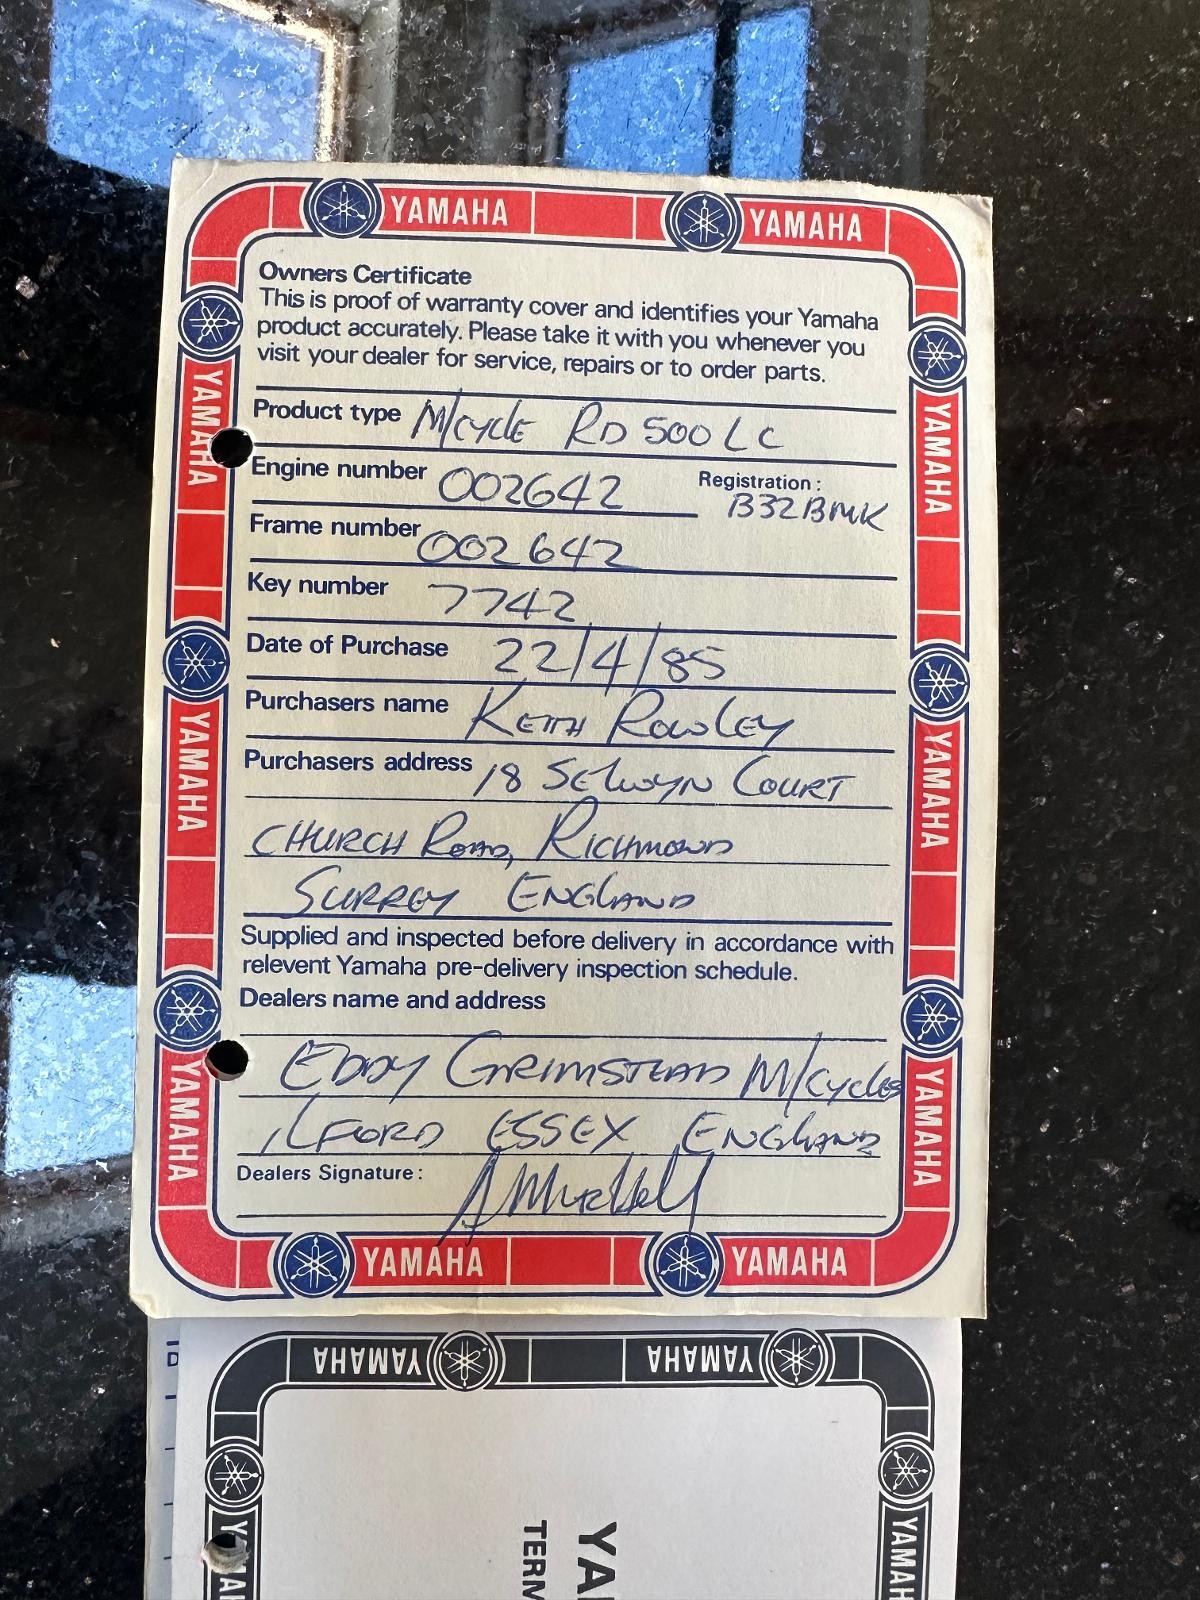 YAMAHA YAMAHA
Owners Certificate
This is proof of warranty cover and identifies your Yamaha
product accurately. Please take it with you whenever you
visit your dealer for service, repairs or to order parts.
Product type M/CYCLE RD 500 LC
Engine number 002642 Registration: B32BMK
Frame number 002642
Key number 7742
Date of Purchase 22/4/85
Purchasers name KEITH ROWLEY
Purchasers address 18 SELWYN COURT
CHURCH ROAD, RICHMOND
SURREY ENGLAND
Supplied and inspected before delivery in accordance with
relevent Yamaha pre-delivery inspection schedule.
Dealers name and address
EDDY GRIMSTEAD M/CYCLES
ILFORD ESSEX ENGLAND
Dealers Signature:
YAMAHA YAMAHA
YAMAHA
YAMAHA
YAMAHA
YAMAHA
YAMAHA
YAMAHA
YAMAHA YAMAHA
YA
TERM
YAMA
YAMAH